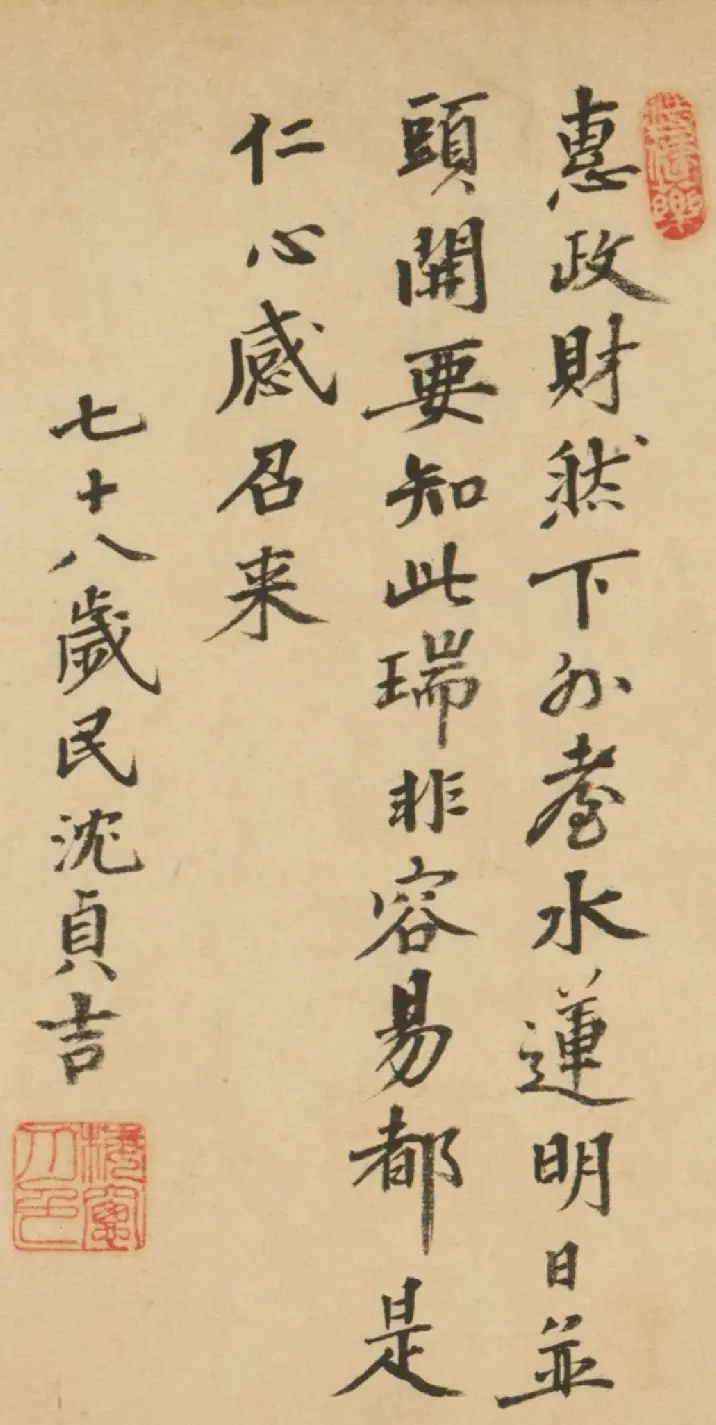 惠政財然下外臺水蓮明日並
頭開要知此瑞非容易都是
仁心感召来
七十八歲民沈貞吉